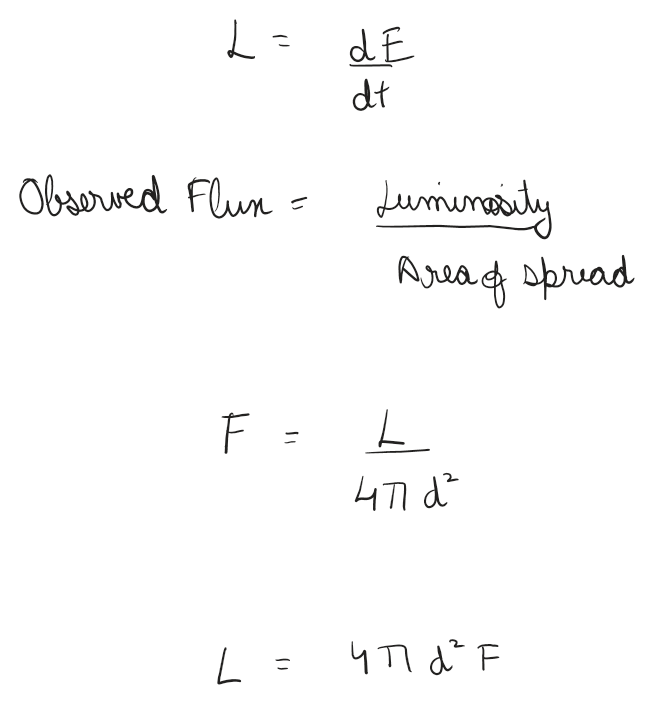 L = dE
dt
Observed Flux = Luminosity
Area of spread
F = L
4π d²
L = 4π d² F